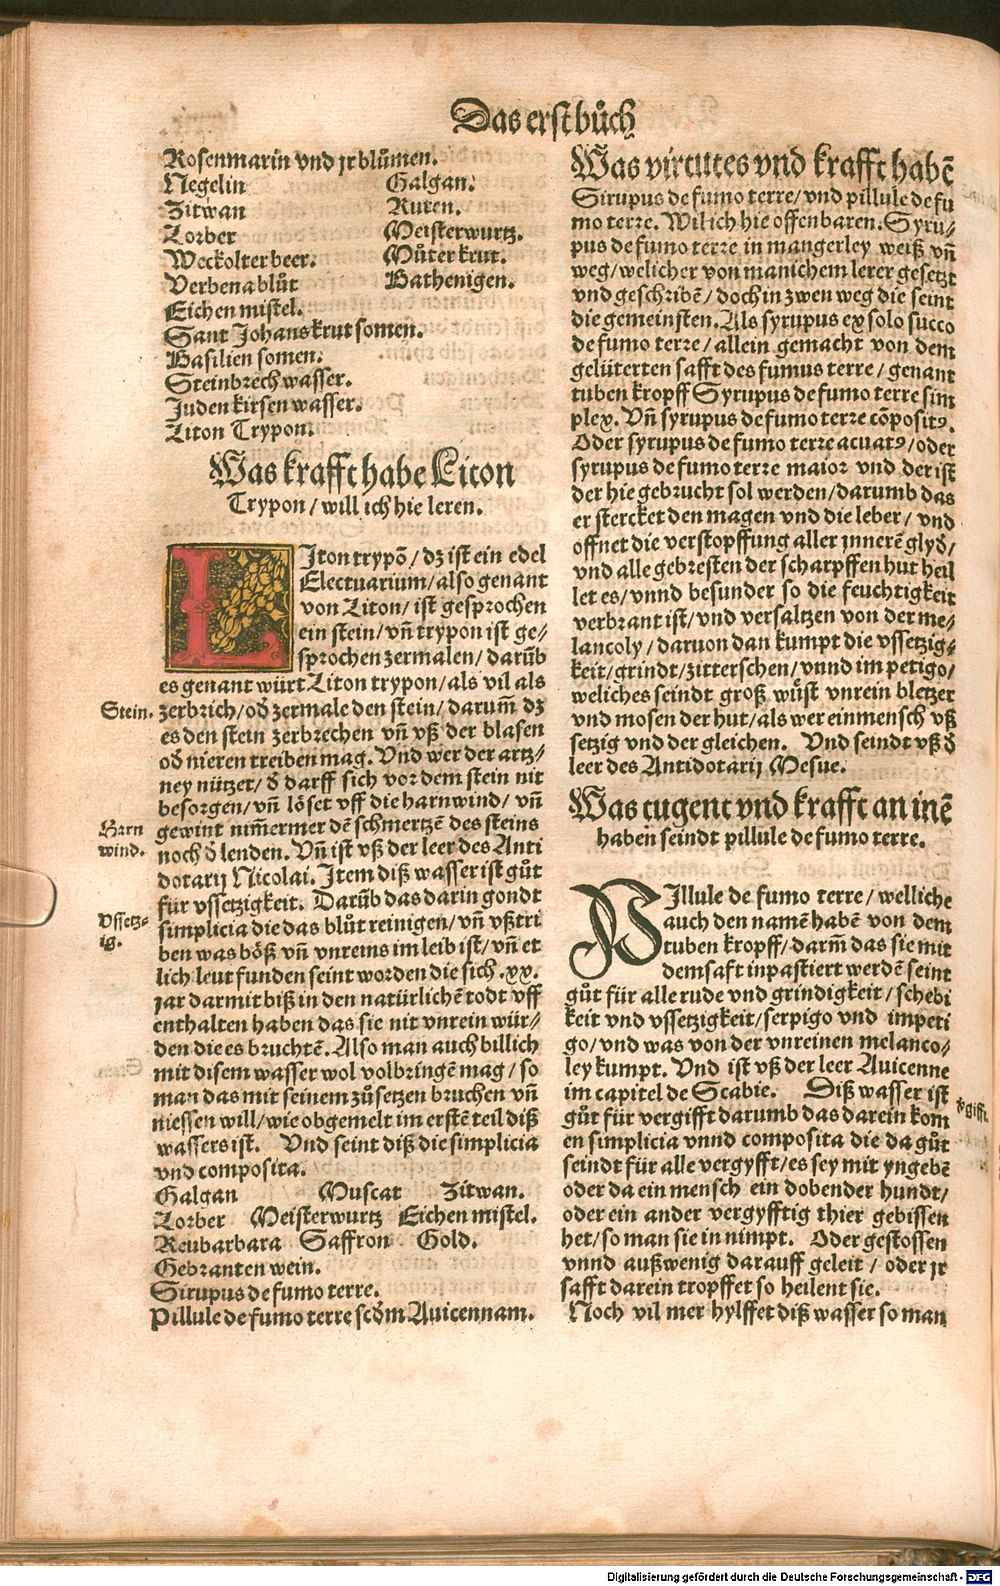 Das erst bůch
Rosenmarin vnd jr blůmen.
Negelin Galgan.
Zitwan Ruten.
Lorber Meisterwurtz.
Weckolterbeer. Můterkrut.
Verbena blůt Bathenigen.
Eichen mistel.
Sant Johans krut somen.
Basilien somen.
Steinbrech wasser.
Juden kirsen wasser.
Liton Trypon.
Was krafft habe Liton
Trypon / will ich hie leren.
LIton trypō / dz ist ein edel
Electuarium / also genant
von Liton / ist gesprochen
ein stein / vn̄ trypon ist ge⸗
sprochen zermalen / darūb
es genant würt Liton trypon / als vil als
Stein. zerbrich / od̕ zermale den stein / darum̄ dz
es den stein zerbrechen vn̄ vß der blasen
od̕ nieren treiben mag. Vnd wer der artz⸗
ney nützet / d̕ darff sich vor dem stein nit
besorgen / vn̄ löset vff die harnwind / vn̄
Harn gewint nim̄ermer dē schmertzē des steins
wind. noch d̕ lenden. Vn̄ ist vß der leer des Anti
dotarij Nicolai. Item diß wasser ist gůt
für vssetzigkeit. Darūb das darin gondt
Vssetz⸗ simplicia die das blůt reinigen / vn̄ vßtri
ig. ben was böß vn̄ vnreins im leib ist / vn̄ et
lich leut funden seint worden die sich .xx.
jar darmit biß in den natürlichē todt vff
enthalten haben das sie nit vnrein wür⸗
den die es bruchtē. Also man auch billich
mit disem wasser wol volbringē mag / so
man das mit seinem zůsetzen bruchen vn̄
niessen will / wie obgemelt im erstē teil diß
wassers ist. Vnd seint diß die simplicia
vnd composita.
Galgan Muscat Zitwan.
Lorber Meisterwurtz Eichen mistel.
Reubarbara Saffron Gold.
Gebranten wein.
Sirupus de fumo terre.
Pillule de fumo terre scd̕m Auicennam.
Was virtutes vnd krafft habē
Sirupus de fumo terre / vnd pillule de fu
mo terre. Wil ich hie offenbaren. Syru⸗
pus de fumo terre in mangerley weiß vn̄
weg / welicher von manichem lerer gesetzt
vnd geschribē / doch in zwen weg die seint
die gemeinsten. Als syrupus ex solo succo
de fumo terre / allein gemacht von dem
gelüterten safft des fumus terre / genant
tuben kropff Syrupus de fumo terre sim
plex. Vn̄ syrupus de fumo terre cōpositꝰ.
Oder syrupus de fumo terre acuatꝰ / oder
syrupus de fumo terre maior vnd der ist
der hie gebrucht sol werden / darumb das
er stercket den magen vnd die leber / vnd
offnet die verstopffung aller jnnerē glyd̕ /
vnd alle gebresten der scharpffen hut heil
let es / vnnd besunder so die feuchtigkeit
verbrant ist / vnd versaltzen von der me⸗
lancoly / daruon dan kumpt die vssetzig⸗
keit / grindt / zitterschen / vnnd im petigo /
weliches seindt groß wůst vnrein bletzer
vnd mosen der hut / als wer ein mensch vß
setzig vnd der gleichen. Vnd seindt vß d̕
leer des Antidotarij Mesue.
Was tugent vnd krafft an inē
haben seindt pillule de fumo terre.
PIllule de fumo terre / welliche
auch den namē habē von dem
tuben kropff / darm̄ das sie mit
dem saft inpastiert werdē seint
gůt für alle rude vnd grindigkeit / schebi
keit vnd vssetzigkeit / serpigo vnd impeti
go / vnd was von der vnreinen melanco⸗
ley kumpt. Vnd ist vß der leer Auicenne
im capitel de Scabie. Diß wasser ist
gůt für vergifft darumb das darein kom v̕gifft.
en simplicia vnnd composita die da gůt
seindt für alle vergyfft / es sey mit yngebē
oder da ein mensch ein dobender hundt /
oder ein ander vergyfftig thier gebissen
het / so man sie in nimpt. Oder gestossen
vnnd außwenig darauff geleit / oder jr
safft darein tropffet so heilent sie.
Noch vil mer hylffet diß wasser so man
Digitalisierung gefördert durch die Deutsche Forschungsgemeinschaft - DFG